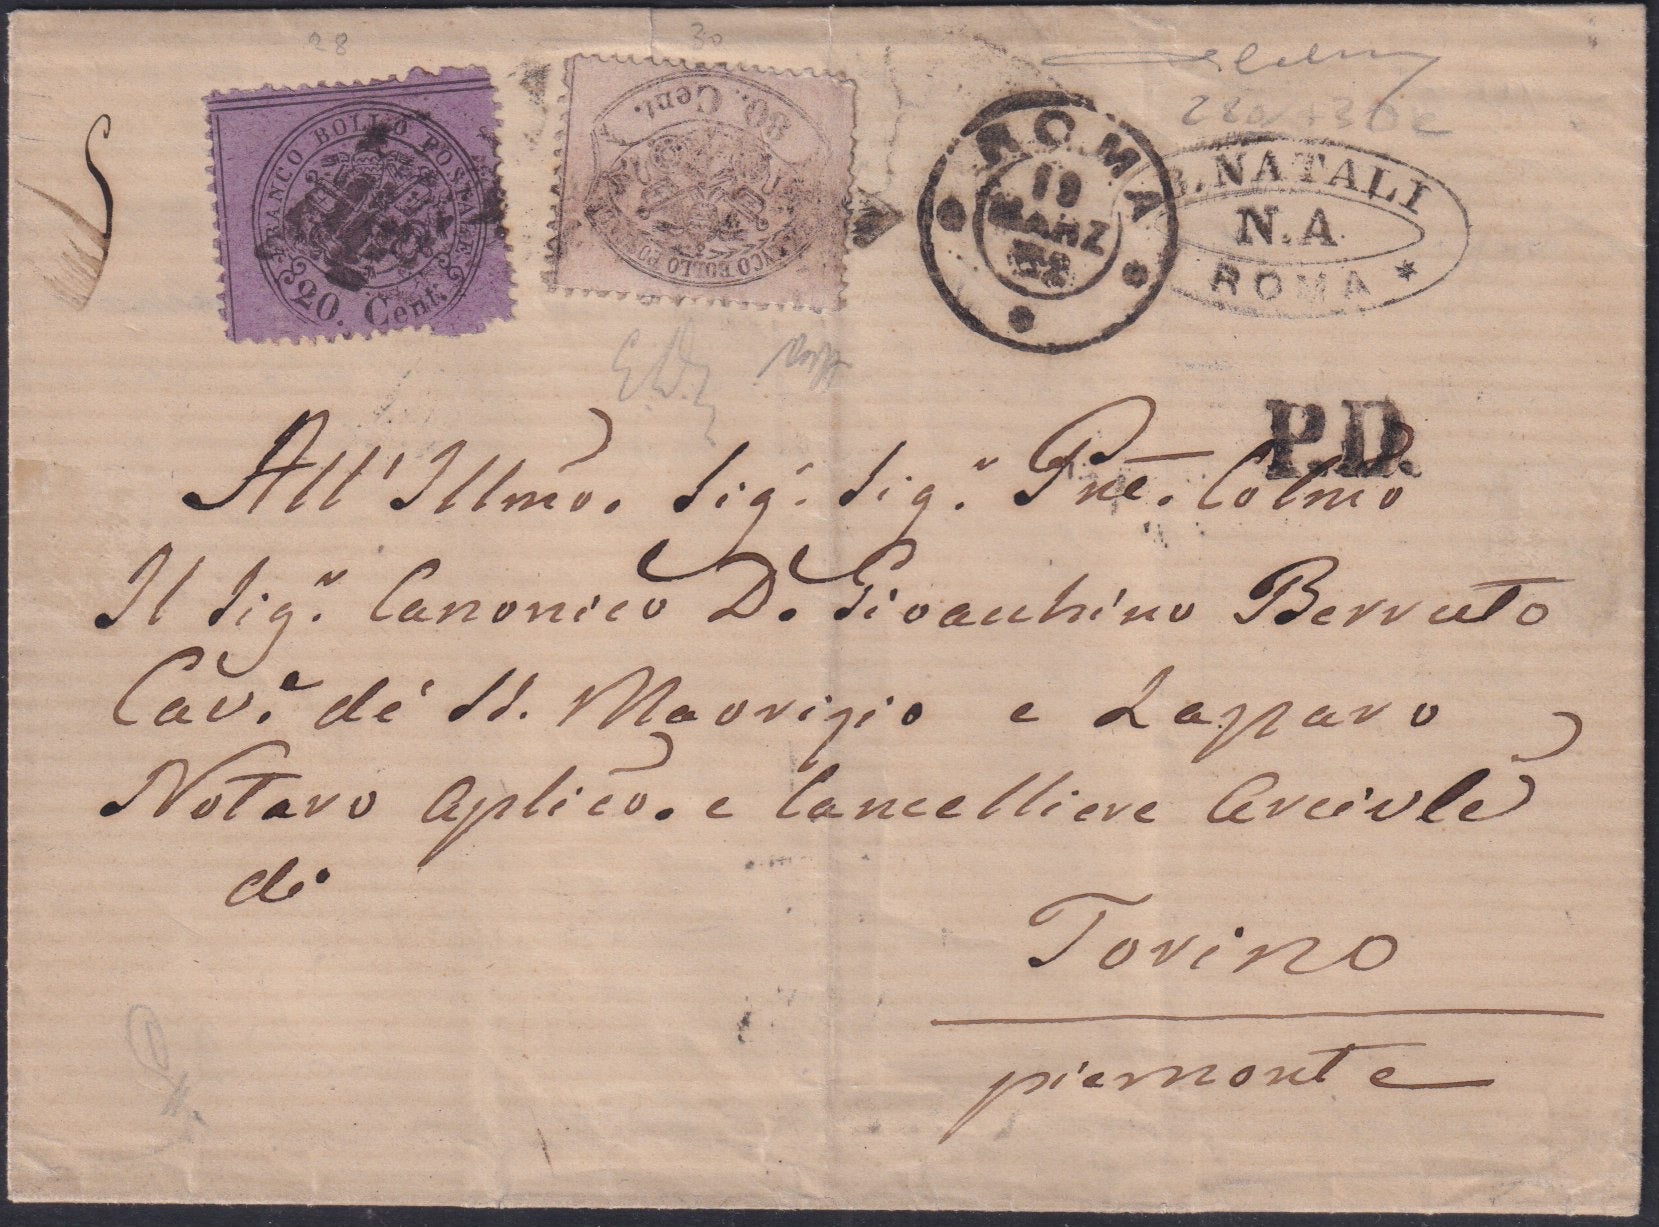 28
30
FRANCO BOLLO POSTALE
20. Cent.
80. Cent.
ROMA
19
MARZ
28a+30c
B. NATALI
N.A
ROMA
P.D.
All' Illmo. Sig.r Sig.r Pne. Colmo
Il Sig.r Canonico D. Gioacchino Berruto
Cav.e de' SS. Maorizio e Lazaro
Notaro Aplico. e Cancelliere Arcivle
di
Torino
piemonte